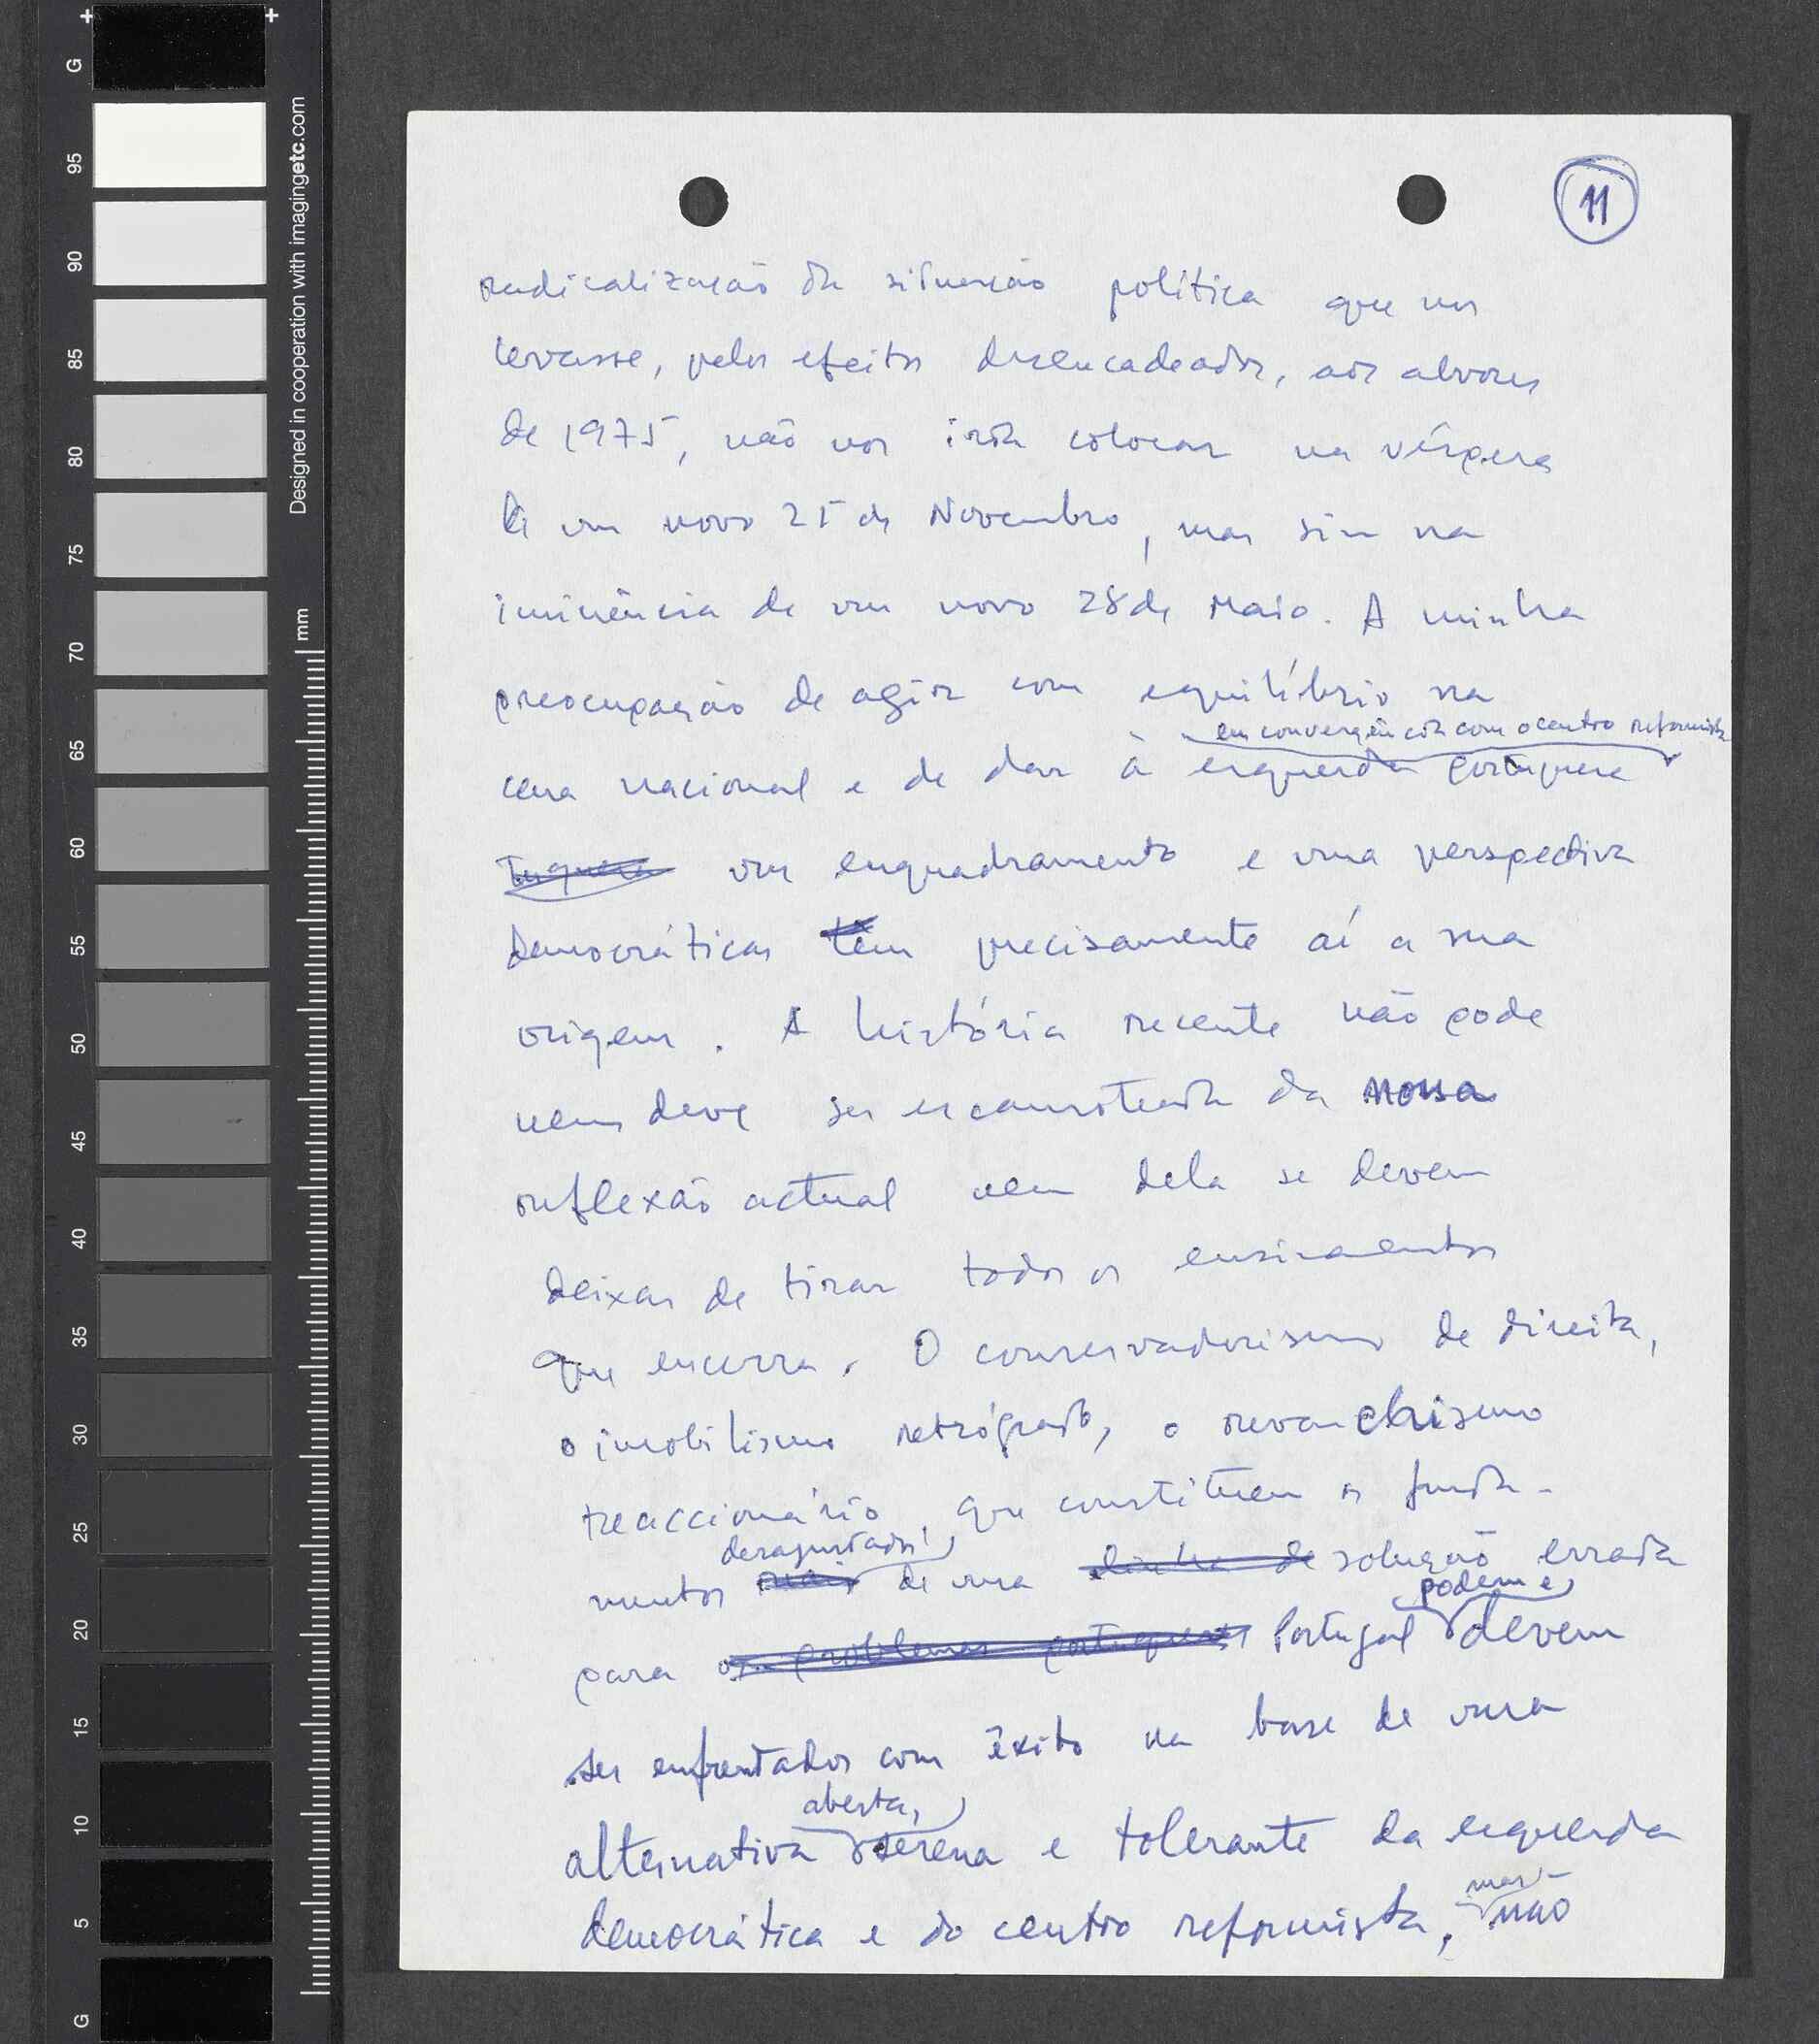 11
radicalização da situação política que nos
levasse, pelos efeitos desencadeados, aos alvores
de 1975, não nos iria colocar na véspera
de um novo 25 de Novembro, mas sim na
iminência de um novo 28 de Maio. A minha
preocupação de agir com equilíbrio na
em convergência com o centro reformista
cena nacional e de dar à esquerda portuguesa
tuguesa um enquadramento e uma perspectiva
democráticas têm precisamente aí a sua
origem. A história recente não pode
nem deve ser escamoteada da nossa
reflexão actual nem dela se devem
deixar de tirar todos os ensinamentos
que encerra. O conservadorismo de direita,
o imobilismo retrógrado, o revanchismo
reaccionário, que constituem os funda-
desajustados
mentos de uma linha de solução errada
podem e
para os problemas portugueses Portugal devem
ser enfrentados com êxito na base de uma
aberta,
alternativa serena e tolerante da esquerda
mas
democrática e do centro reformista, não
G
95
90
85
80
75
70
65
60
55
50
45
40
35
30
25
20
15
10
5
G
Designed in cooperation with imagingetc.com
mm